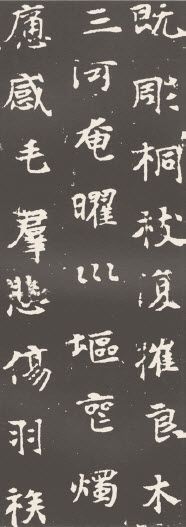 既彫桐枝復摧良木
三河奄曜巛塸喪燭
感毛羣悲傷羽族